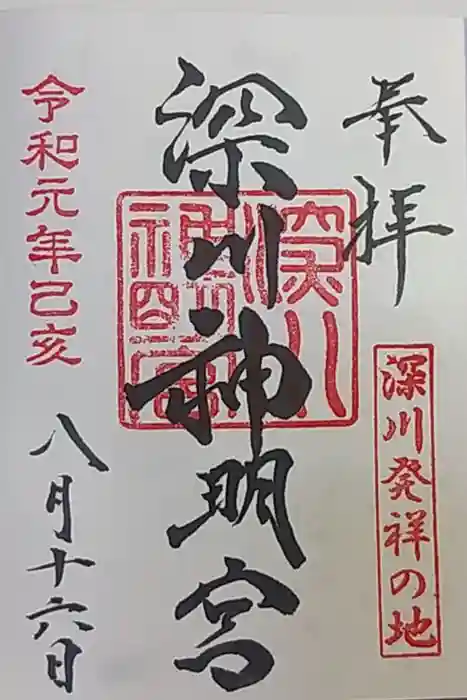 奉拝
深川発祥の地
深川神明宮
深川神明宮
令和元年己亥
八月十六日